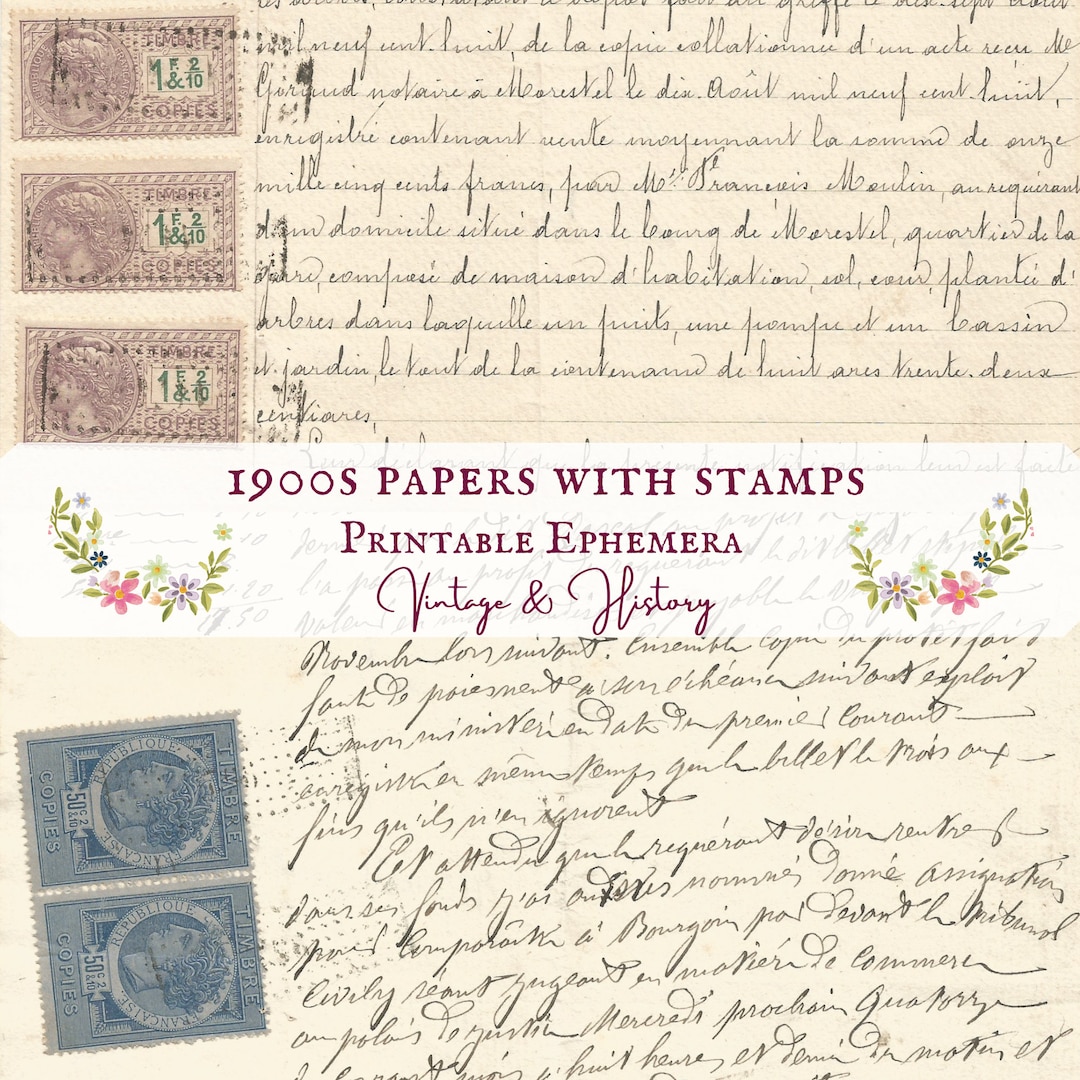 mil neuf cent huit, de la copie collationnée d'un acte reçu Me
notaire à Morestel le dix. Août mil neuf cent huit,
enregistré contenant vente moyennant la somme de onze
mille cinq cents francs, par Mr. François Moulin, au requérant
d'un domicile situé dans le bourg de Morestel, quartier de la
gare, composé de maison d'habitation, sol, cour, plantée d'
arbres dans laquelle un puits, une pompe et un bassin
et jardin, le tout de la contenance de huit ares trente. deux
centiares,
TIMBRE
1 F. 2
& 10
COPIES
TIMBRE
1 F. 2
& 10
COPIES
TIMBRE
1 F. 2
& 10
COPIES
1900s PAPERS WITH STAMPS
PRINTABLE EPHEMERA
Vintage & History
Novembre lors suivant. Ensemble copie du protêt fait
faute de paiement à son échéance suivant exploit
de mon ministère en date du premier courant
enregistré en même temps que le billet le trois aux
fins qu'ils n'en ignorent
Et attendu que le requérant désire rentrer
dans ses fonds j'ai nommés donné assignation
pour comparaître à Bourgoin par devant le tribunal
Civil y séant jugeant en matière de commerce
au palais de justice Mercredi prochain Quatorze
courant mois à huit heures et demie du matin et
TIMBRE
RÉPUBLIQUE FRANÇAISE
50 c 2
& 10
COPIES
TIMBRE
RÉPUBLIQUE FRANÇAISE
50 c 2
& 10
COPIES